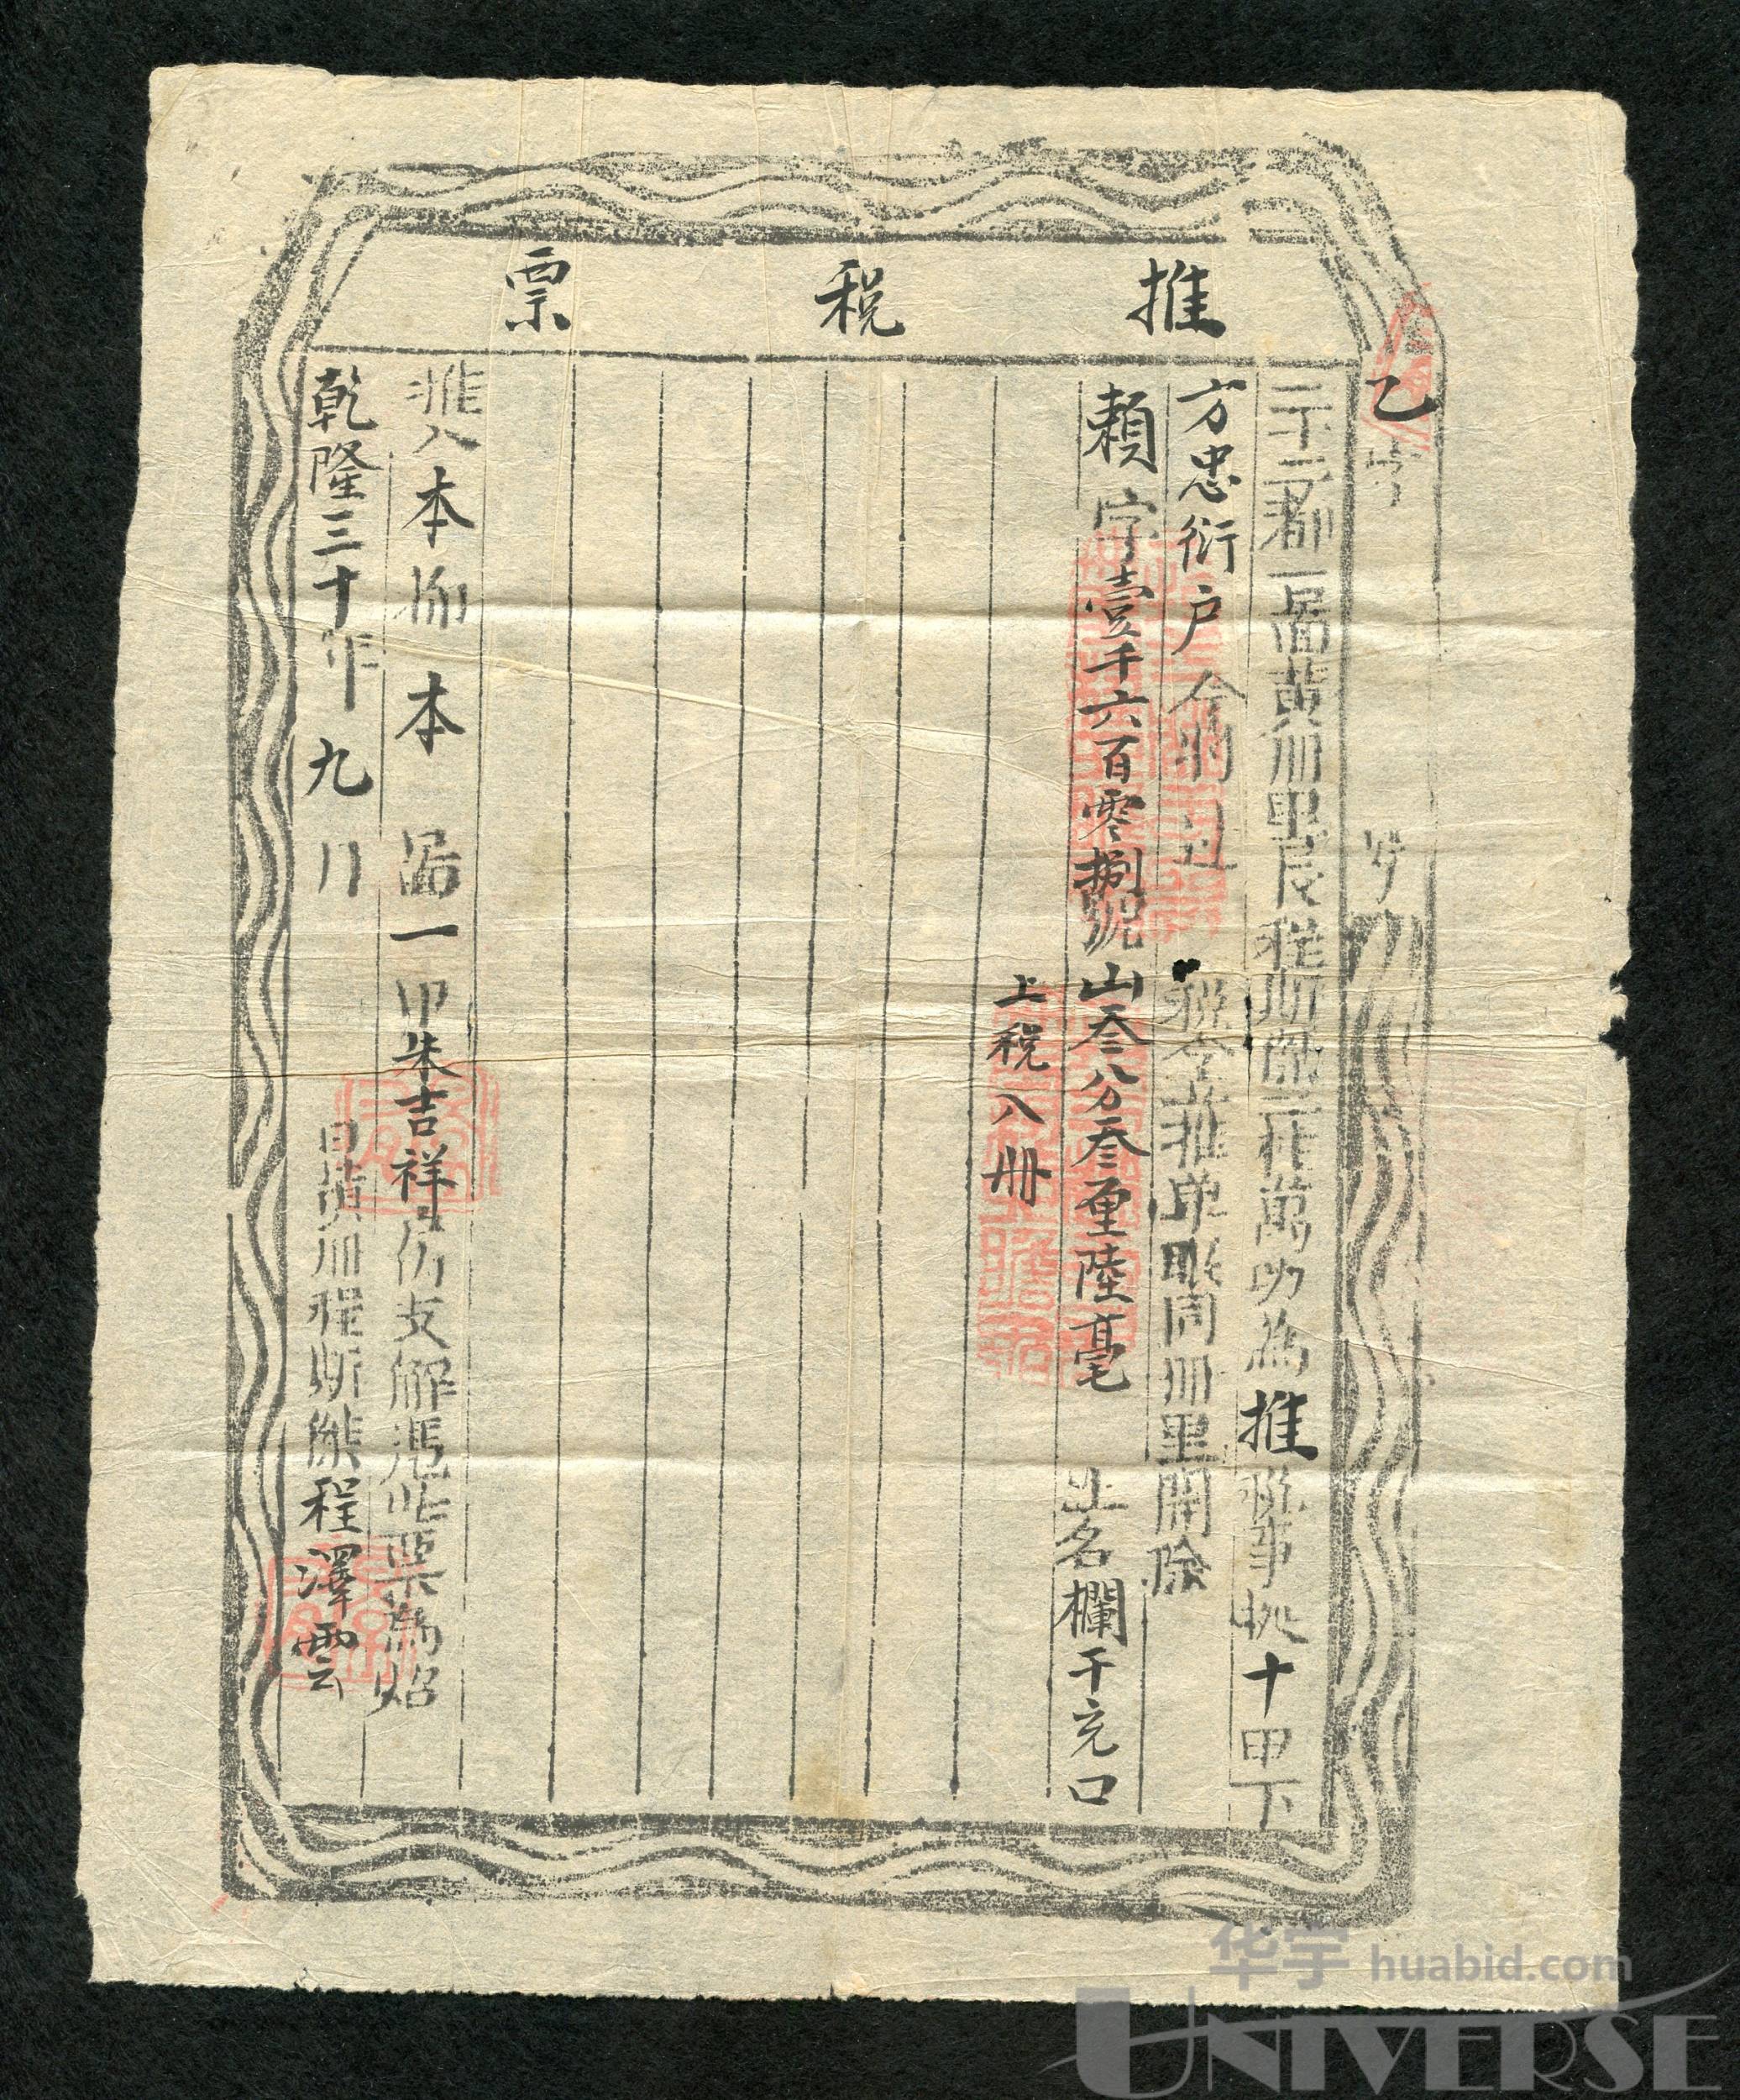 推稅票
乙字 號
二十三都一圖黄冊里長程斯 萬 為推稅事抵十甲下
方忠衍户今將 稅今推單眼同冊里開除
賴字壹千六百零捌號山叁八分叁厘陸毫 土名欄干充口
上稅入冊
推入本都本啚一甲朱吉祥 仍支解凴此票為炤
乾隆三十年九月 日黄冊程斯 程澤雲
华宇 huabid.com
UNIVERSE